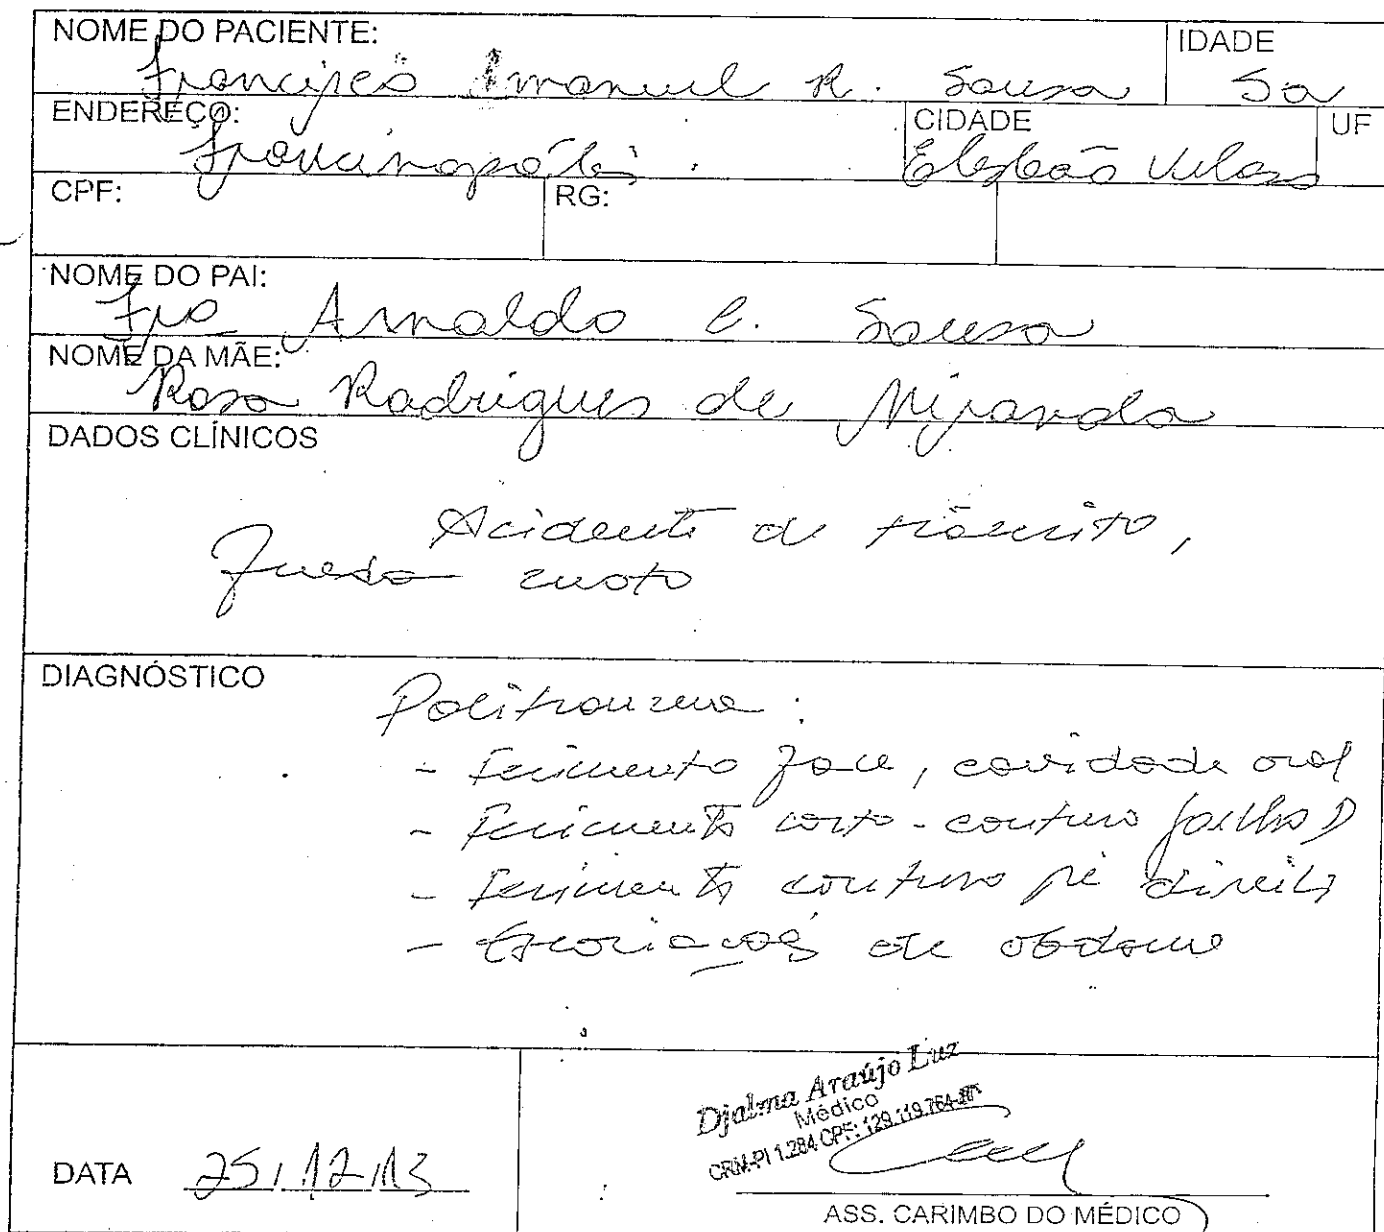 NOME DO PACIENTE: IDADE
Francisco Emanuel R. Sousa 5a
ENDEREÇO: CIDADE UF
Francinopólis. Elesbão Veloso
CPF: RG:
NOME DO PAI:
Fco Arnaldo C. Sousa
NOME DA MÃE:
Rosa Rodrigues de Miranda
DADOS CLÍNICOS
Acidente de trânsito,
Queda moto
DIAGNÓSTICO
Politrauma:
- ferimento face, cavidade oral
- ferimento corto-contuso joelho D
- ferimento contuso pé direito
- Escoriações de abdome
Djalma Araújo Luz
Médico
CRM-PI 1.284 CPF: 129.119.764-
DATA 25/12/13
ASS. CARIMBO DO MÉDICO